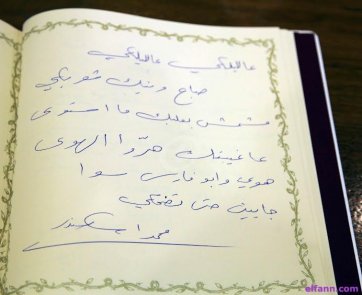 عالبلكي عالبلكي
ضاع وينيك شو بكي
مشمش بعلبك ما استوى
عا غيبتك هرّوا الهوى
هوي وابو فارس سوا
جايين حتى تضحكي
محمد اسكندر
elfann.com